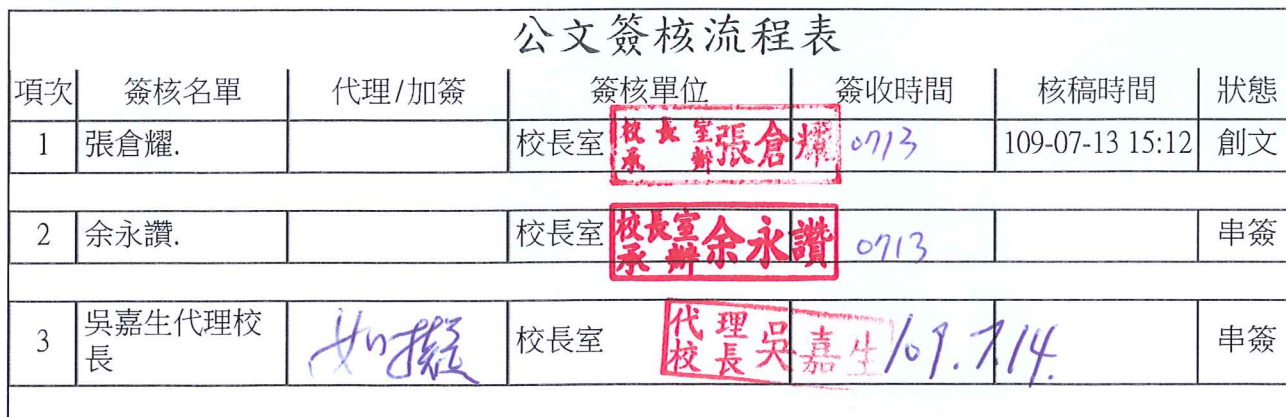 公文簽核流程表
項次 簽核名單 代理/加簽 簽核單位 簽收時間 核稿時間 狀態
1 張倉耀. 校長室 校長室承辦 張倉耀 0713 109-07-13 15:12 創文
2 余永讚. 校長室 校長室承辦 余永讚 0713 串簽
3 吳嘉生代理校長 如擬 校長室 代理校長 吳嘉生 109.7.14. 串簽